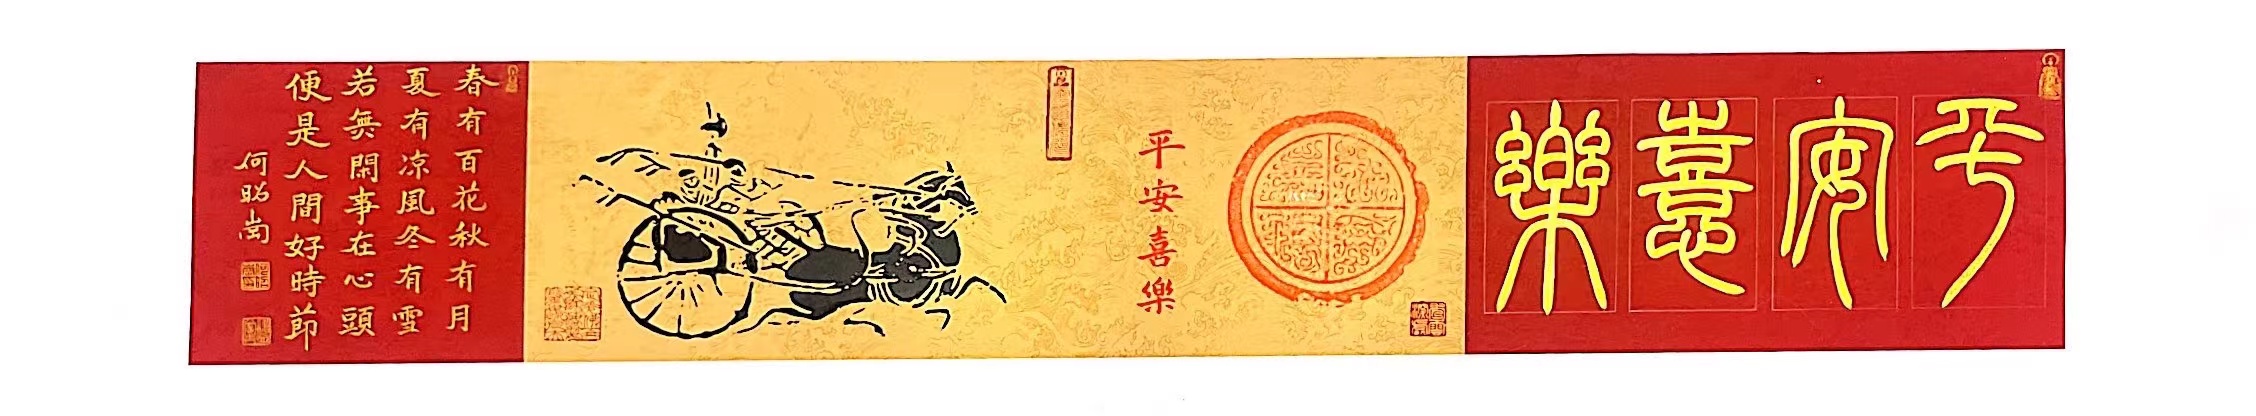 平安憙樂
平安喜樂
春有百花秋有月
夏有凉風冬有雪
若無閑事在心頭
便是人間好時節
何